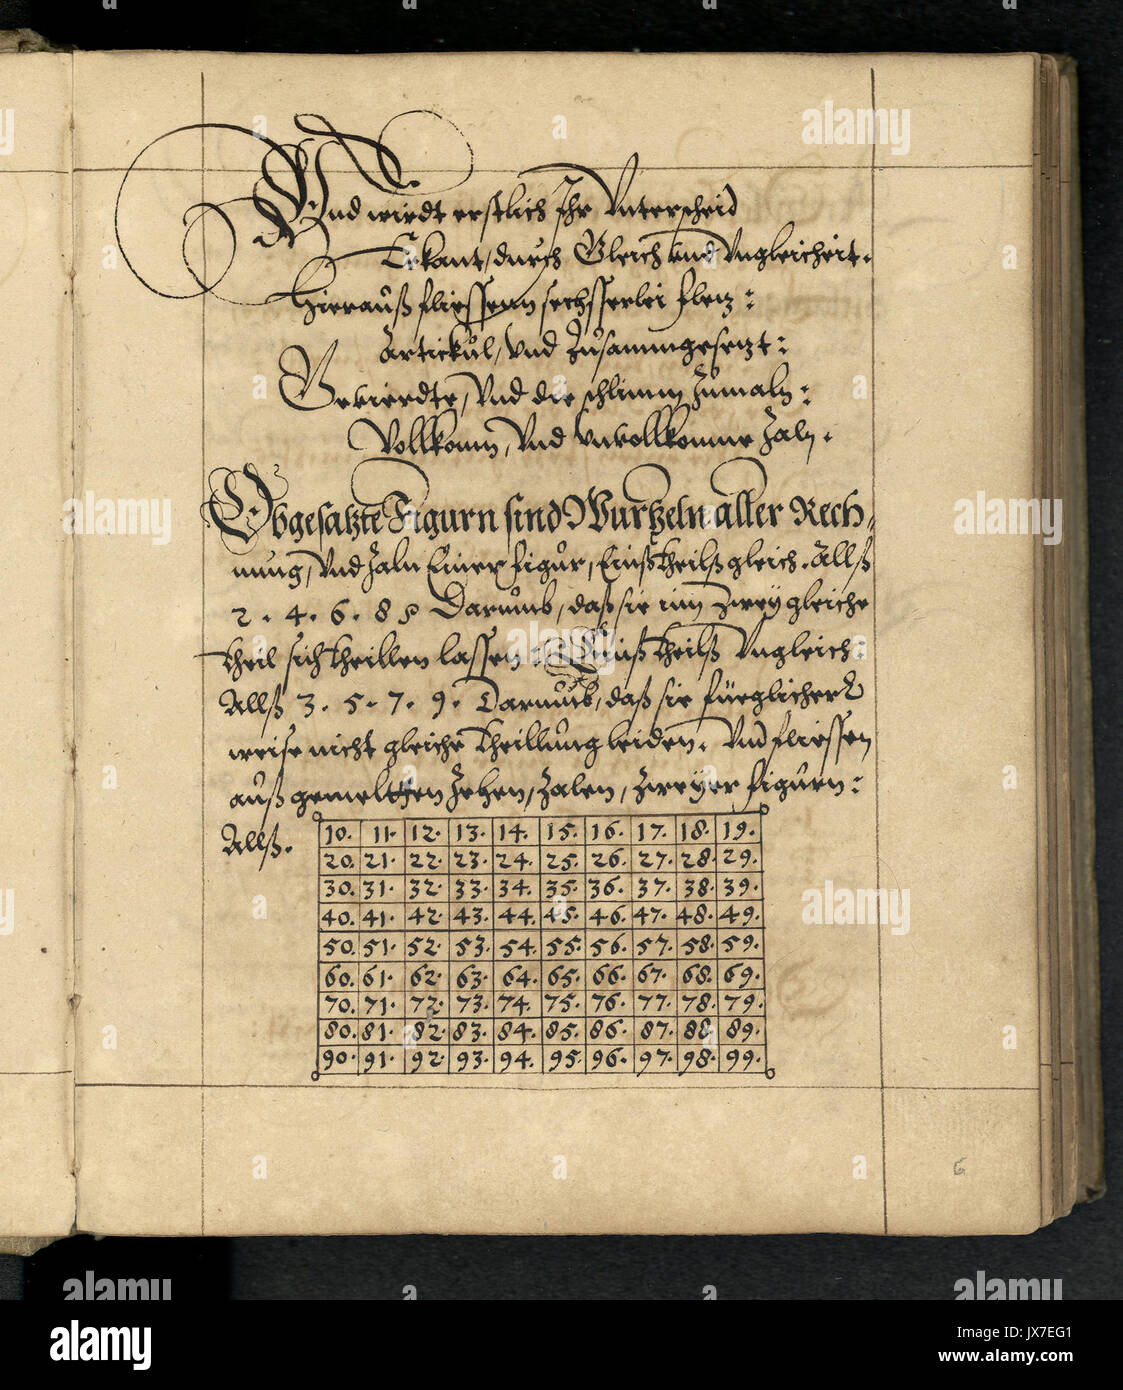 Und wirdt erstlich Ihr Unterscheid
Erkant, durch Gleich und Ungleicheit.
Hierauß fliessenn sechsserlei
Artickul, und Zusammgesetzt:
Gevierdte, Und die schlimm Zumaln:
Vollkomn, Und Unvollkomne Zaln.
Obgesatzte Figurn sind Wurtzeln aller Rech-
nung, Und Zaln Einer figur, Einß theilß gleich. Allß
2. 4. 6. 8 Darumb, daß sie inn Zwey gleiche
theil sich theillen lassen: Einß theilß Ungleich:
Allß 3. 5. 7. 9. Darumb, daß sie füeglicher
weise nicht gleiche theillung leiden. Und fliessen
auß gemeltten Zehen, Zalen, Zweyer figurn:
Allß.
10. 11. 12. 13. 14. 15. 16. 17. 18. 19.
20. 21. 22. 23. 24. 25. 26. 27. 28. 29.
30. 31. 32. 33. 34. 35. 36. 37. 38. 39.
40. 41. 42. 43. 44. 45. 46. 47. 48. 49.
50. 51. 52. 53. 54. 55. 56. 57. 58. 59.
60. 61. 62. 63. 64. 65. 66. 67. 68. 69.
70. 71. 72. 73. 74. 75. 76. 77. 78. 79.
80. 81. 82. 83. 84. 85. 86. 87. 88. 89.
90. 91. 92. 93. 94. 95. 96. 97. 98. 99.
6
alamy
Image ID: JX7EG1
www.alamy.com